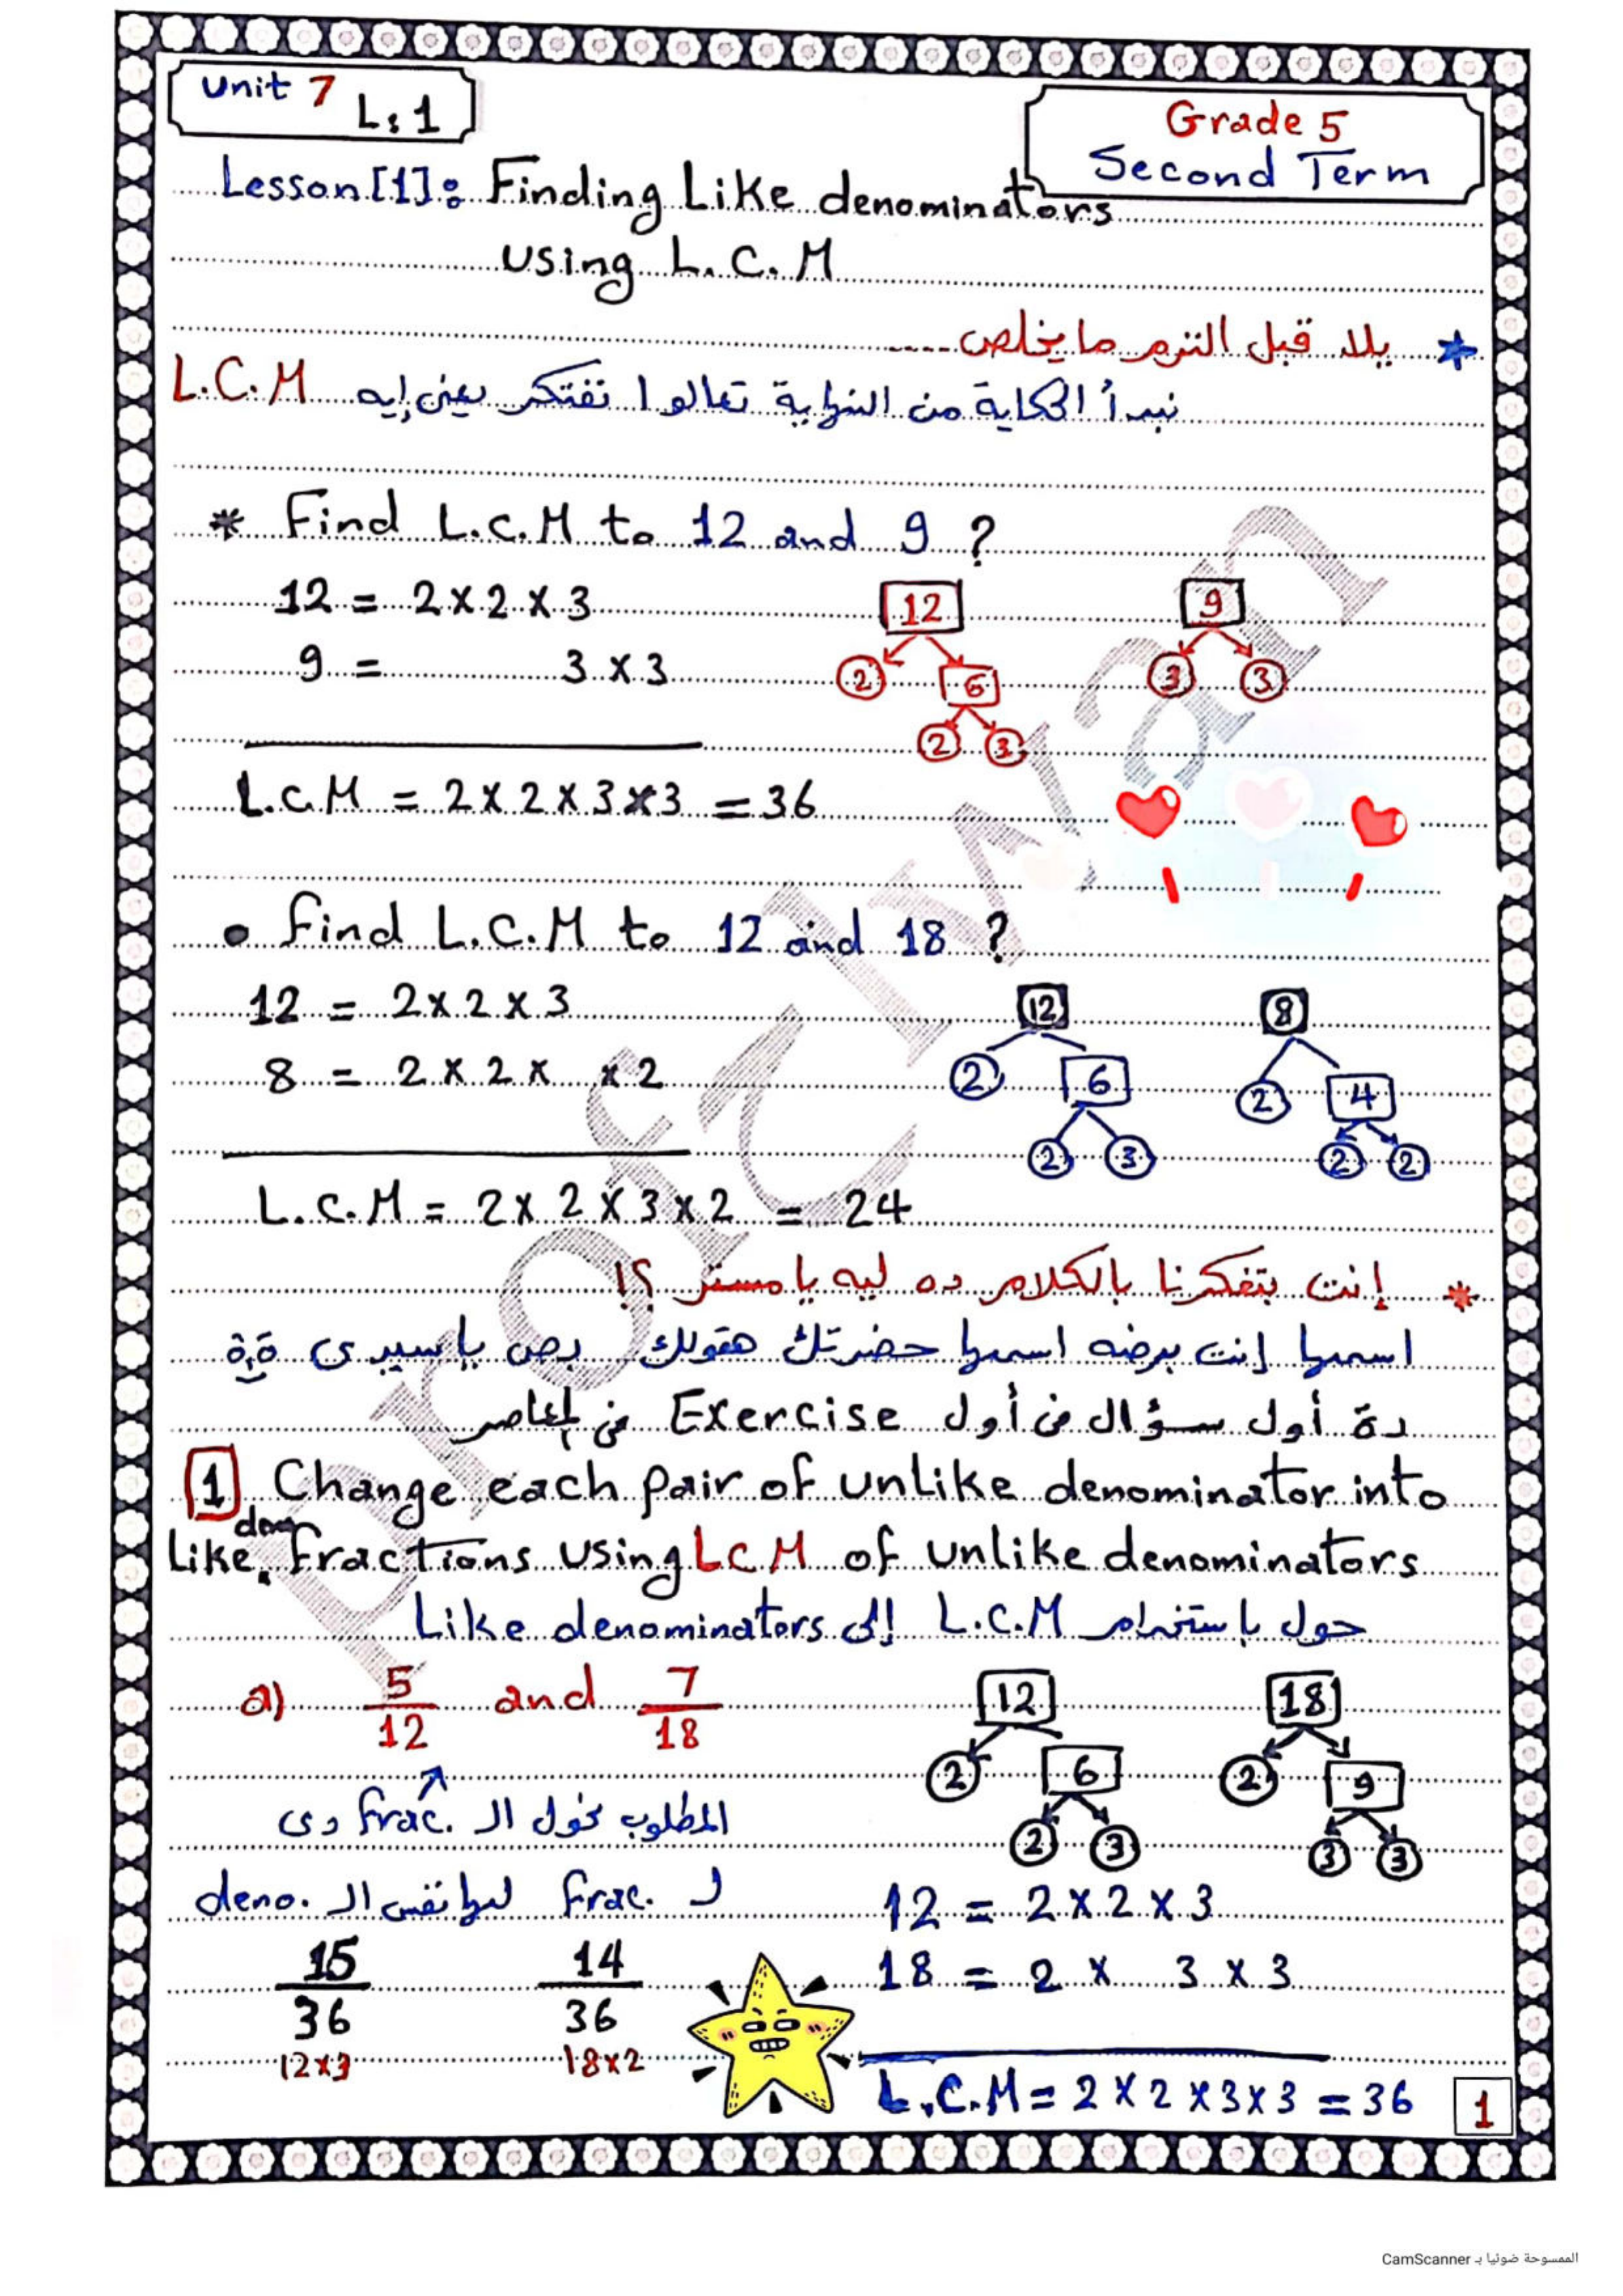 Unit 7 L:1
Grade 5
Second Term
Lesson [1]: Finding Like denominators
using L.C.M
* يلا قبل الترم ما يخلص ....
نبدأ الحكاية من النهاية تعالوا نفتكر يعنى إيه L.C.M
* Find L.C.M to 12 and 9 ?
12 = 2 x 2 x 3
9 = 3 x 3
12
2 6
2 3
9
3 3
L.C.M = 2 x 2 x 3 x 3 = 36
• Find L.C.M to 12 and 18 ?
12 = 2 x 2 x 3
8 = 2 x 2 x x 2
12
2 6
2 3
8
2 4
2 2
L.C.M = 2 x 2 x 3 x 2 = 24
* إنت بتفكرنا بالكلام ده ليه يا مستر ؟!
اسمها إنت برضه اسمها حضرتك هقولك بص يا سيدى
دة أول سؤال فى أول Exercise فى
1 Change each pair of unlike denominator into
Like deno fractions using LCM of unlike denominators
حول باستخدام L.C.M إلى Like denominators
a) 5/12 and 7/18
12
2 6
2 3
18
2 9
3 3
المطلوب نحول الـ frac. دى
لـ frac. ليها نفس الـ deno.
12 = 2 x 2 x 3
18 = 2 x 3 x 3
15/36 14/36
12x3 18x2
L.C.M = 2 x 2 x 3 x 3 = 36
1
الممسوحة ضوئيا بـ CamScanner